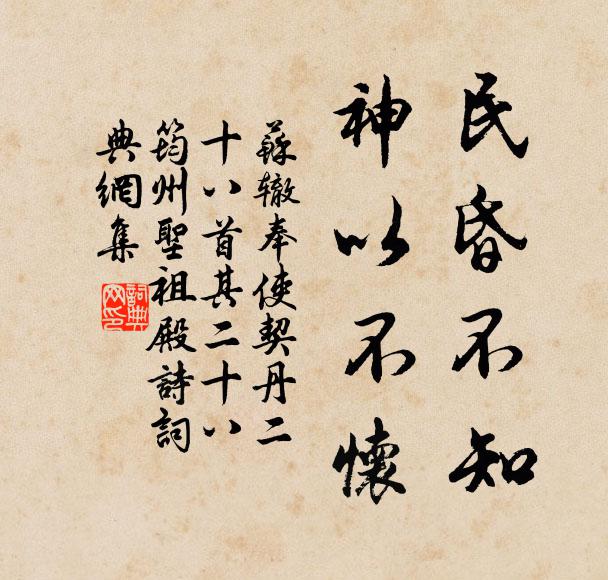 民昏不知
神以不懷
蘇轍奉使契丹二
十八首其二十八
筠州聖祖殿詩詞
典網集
詞典網印